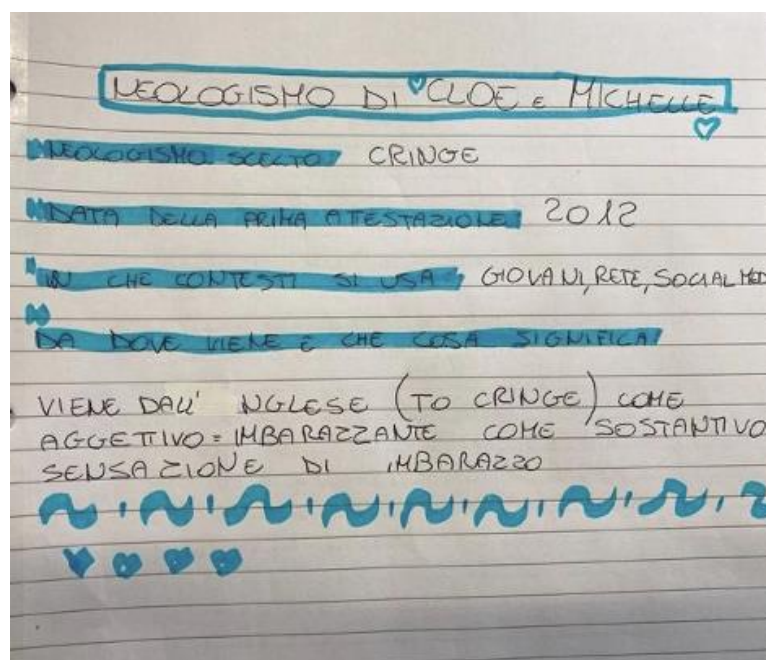 NEOLOGISMO DI CLOE E MICHELLE
NEOLOGISMO SCELTO CRINGE
DATA DELLA PRIMA ATTESTAZIONE 2012
IN CHE CONTESTI SI USA GIOVANI, RETE, SOCIAL MED
DA DOVE VIENE E CHE COSA SIGNIFICA
VIENE DALL' NGLESE (TO CRINGE) COME
AGGETTIVO = IMBARAZZANTE COME SOSTANTIVO
SENSAZIONE DI IMBARAZZO